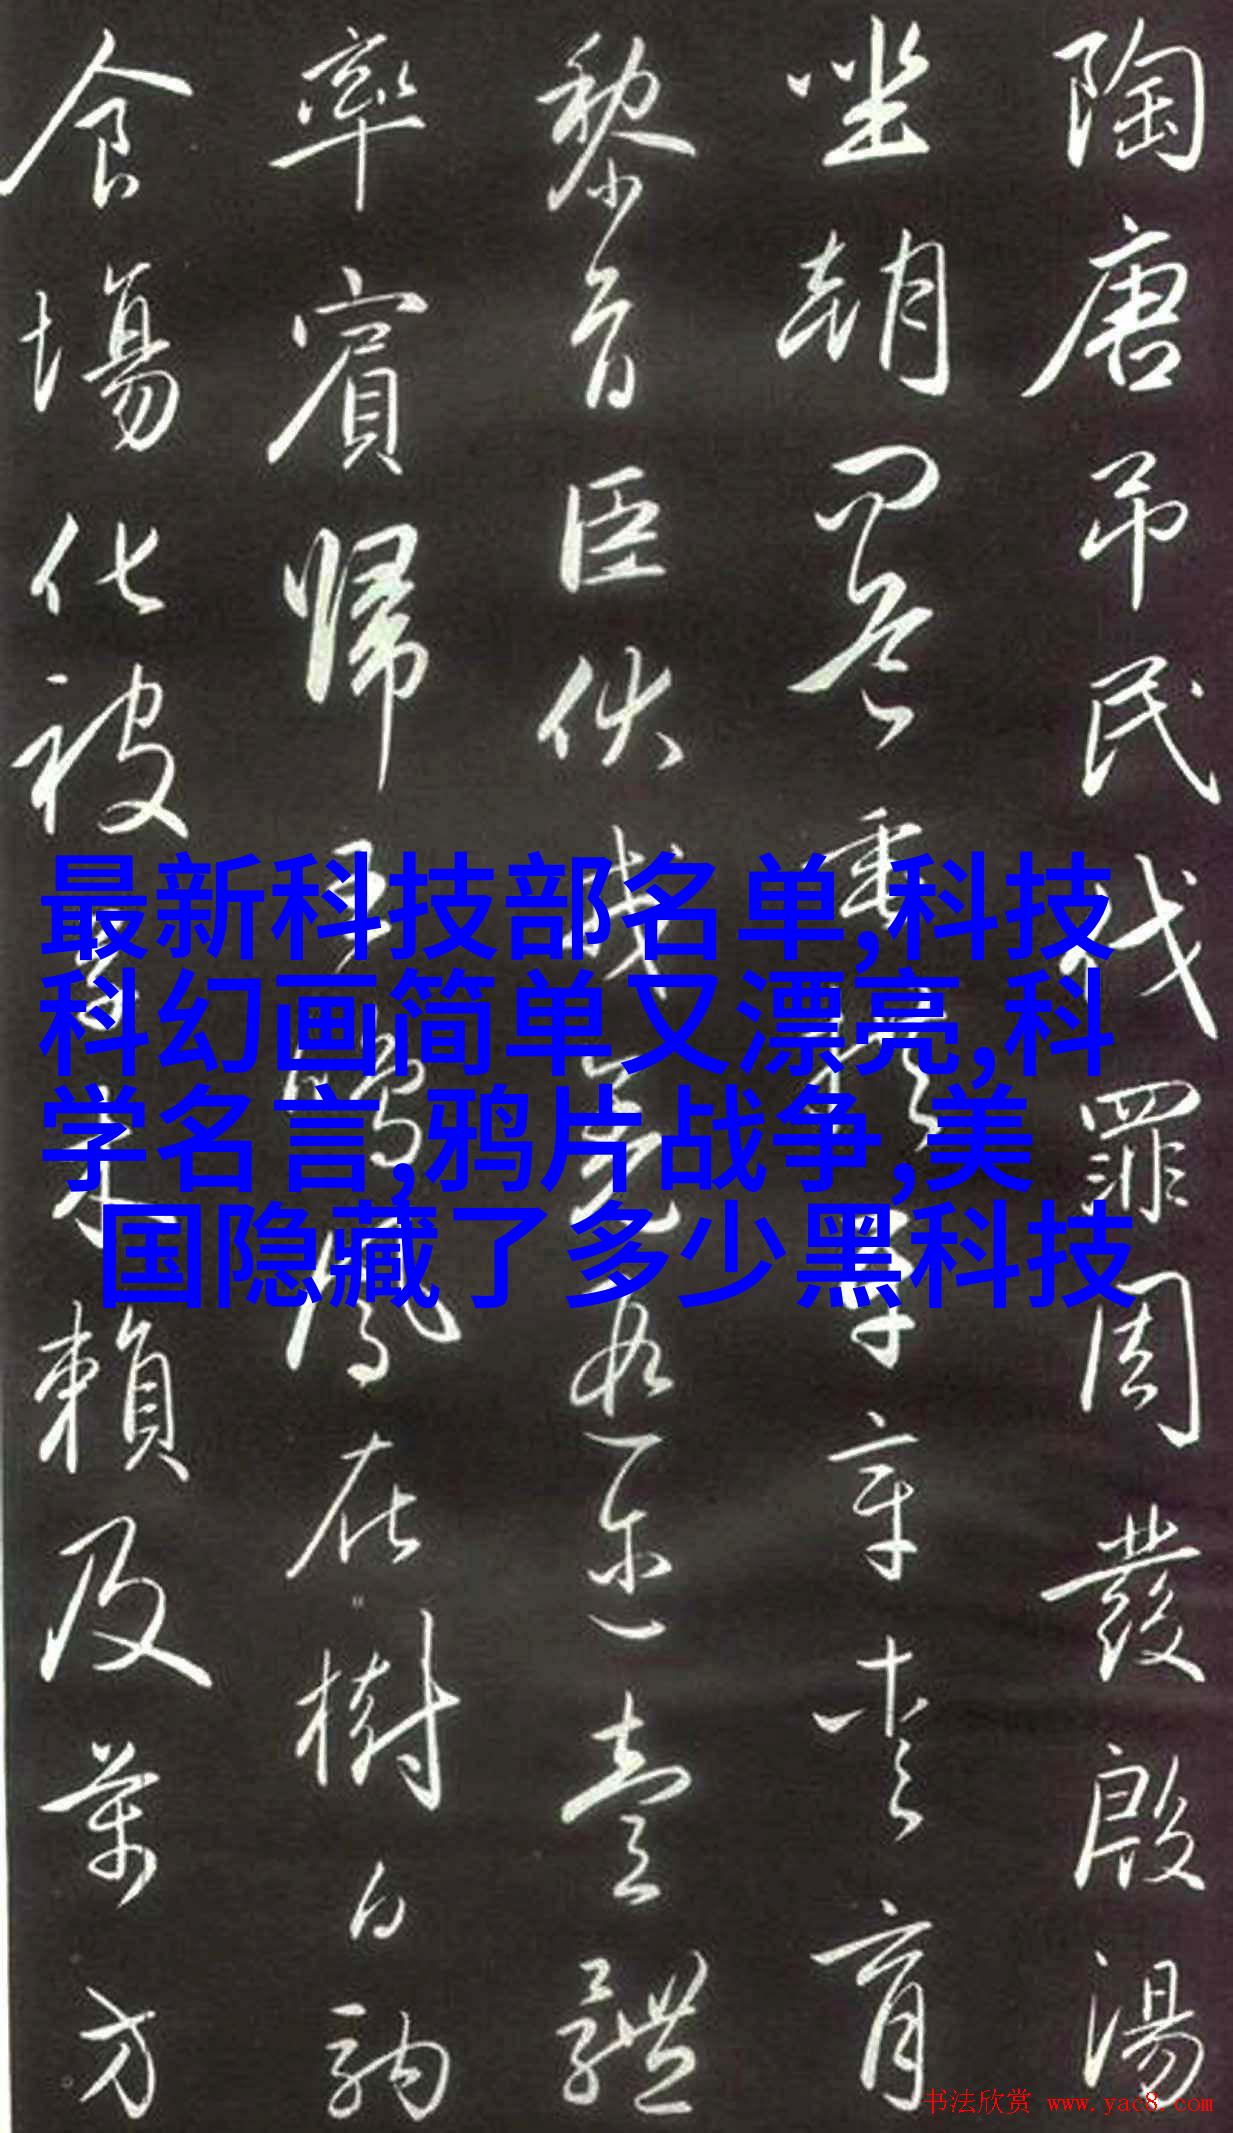 陶唐吊民伐罪周發殷湯
坐朝問道垂拱平章愛育
黎首臣伏戎羌遐邇壹體
率賓歸王鳴鳳在樹白駒
食場化被草木賴及萬方
最新科技部名单,科技
科幻画简单又漂亮,科
学名言,鸦片战争,美
国隐藏了多少黑科技
书法欣赏 www.yac8.com